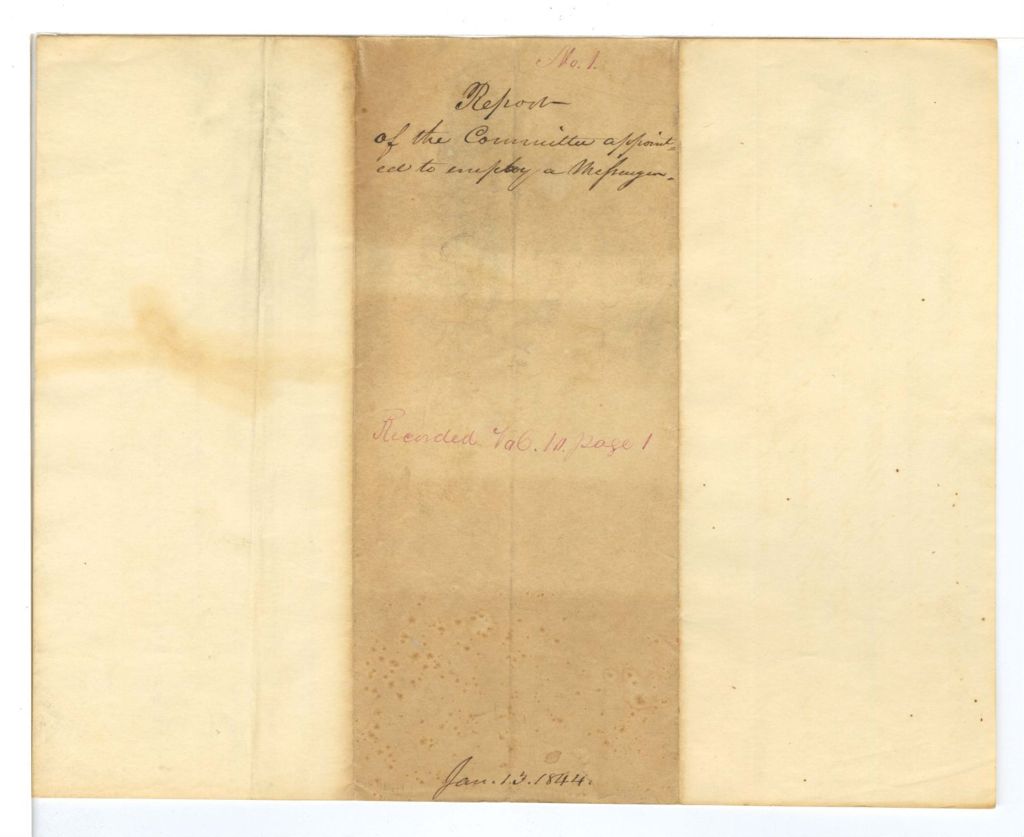 No. 1.
Report
of the Committee appoint=
ed to employ a Messenger.
Recorded Vol. 10. page 1
Jan. 13. 1844.